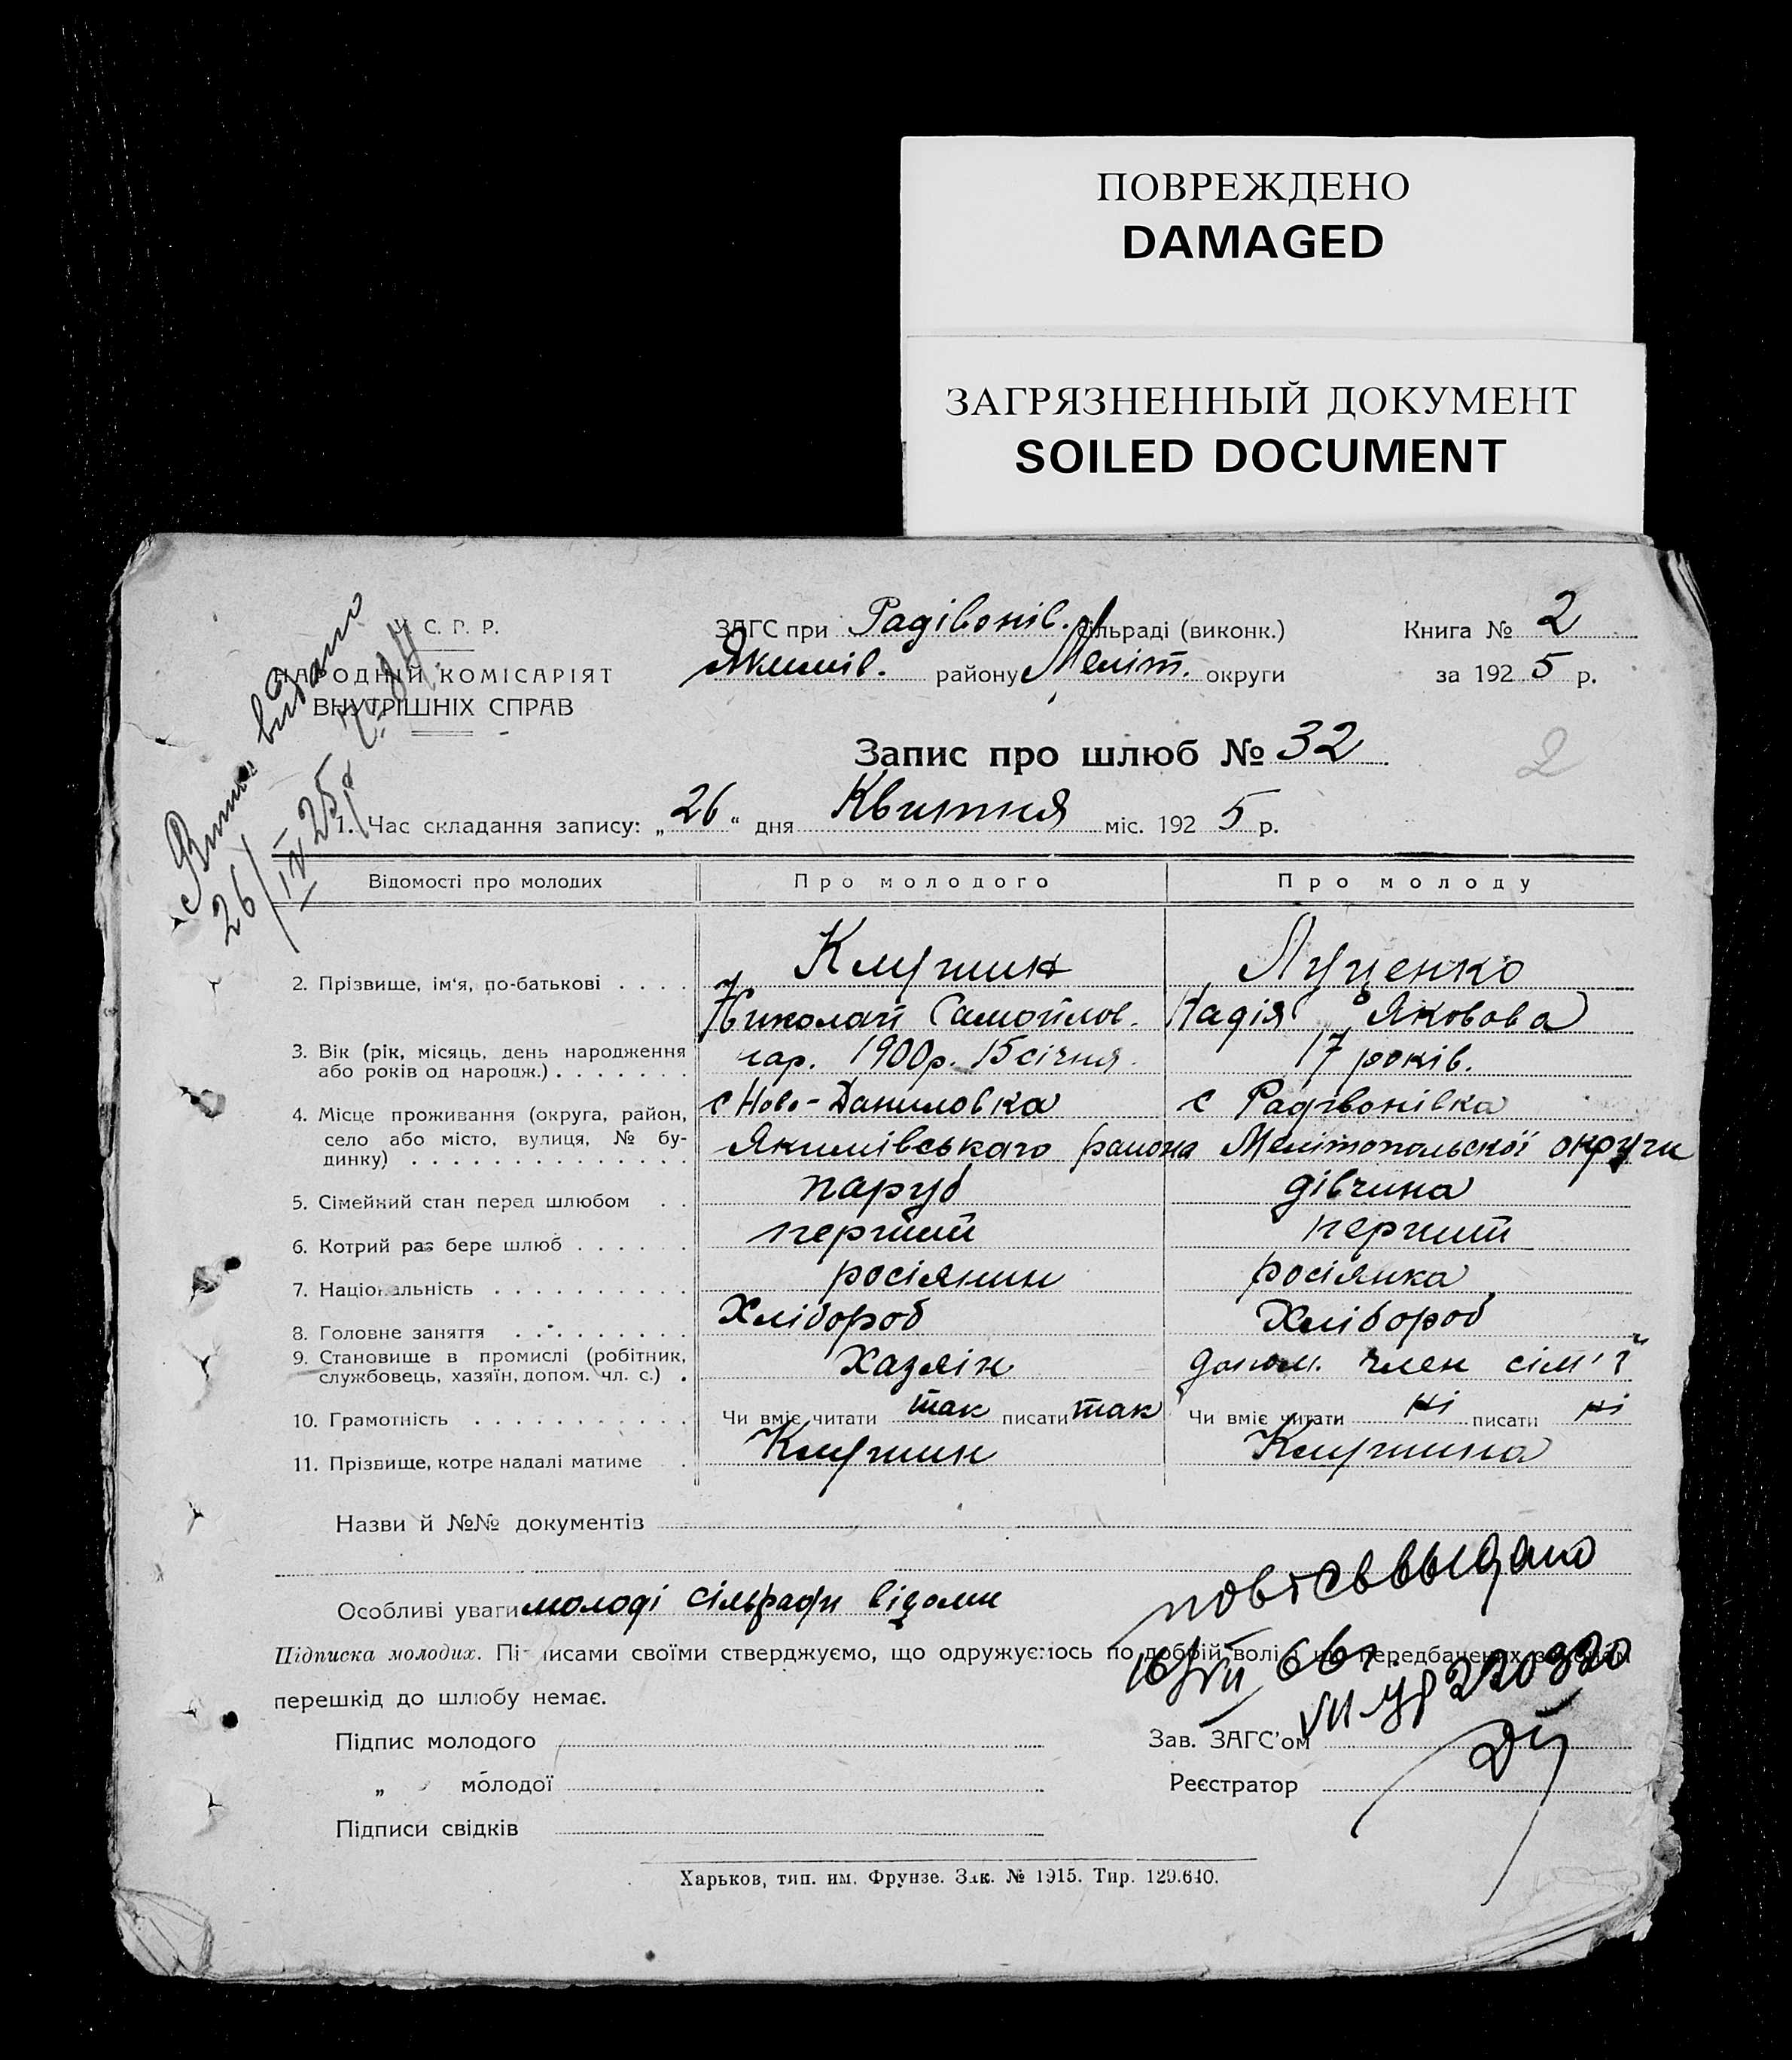 ПОВРЕЖДЕНО
DAMAGED
ЗАГРЯЗНЕННЫЙ ДОКУМЕНТ
SOILED DOCUMENT
У. С. Р. Р.
НАРОДНІЙ КОМІСАРІЯТ
ВНУТРІШНІХ СПРАВ
видано
26/IV 25
ЗАГС при Радівонів. сільраді (виконк.)
Якимів. району Меліт. округи
Книга № 2
за 1925 р.
Запис про шлюб № 32
2
1. Час складання запису: „26“ дня Квітня міс. 1925 р.
Відомості про молодих Про молодого Про молоду
2. Прізвище, ім'я, по-батькові . . . . Клушин Луценко
Николай Самойлов. Надія Яковова
3. Вік (рік, місяць, день народження або років од народж.) . . . . . . . нар. 1900р. 15 січня. 17 років.
4. Місце проживання (округа, район, село або місто, вулиця, № будинку) . . . . . . . . . . . . . . с Ново-Даниловка с Радівонівка
Якимівського района Мелітопольскої округи
5. Сімейний стан перед шлюбом . . паруб дівчина
6. Котрий раз бере шлюб . . . . . . перший перший
7. Національність . . . . . . . . . . росіянин росіянка
8. Головне заняття . . . . . . . . . Хлібороб Хлібороб
9. Становище в промислі (робітник, службовець, хазяїн, допом. чл. с.) . Хазяїн допом. член сім'ї
10. Грамотність . . . . . . . . . . . Чи вміє читати так писати так Чи вміє читати ні писати ні
11. Прізвище, котре надалі матиме . Клушин Клушина
Назви й №№ документів
Особливі уваги молоді сільради відоми
повт св выдано
16/VII 66г.
УР 220320
Підписка молодих. Підписами своїми стверджуємо, що одружуємось по добрій волі і що передбачених законом
перешкід до шлюбу немає.
Підпис молодого
Зав. ЗАГС'ом
„ молодої
Реєстратор
Підписи свідків
Харьков, тип. им. Фрунзе. Зак. № 1915. Тир. 129.640.